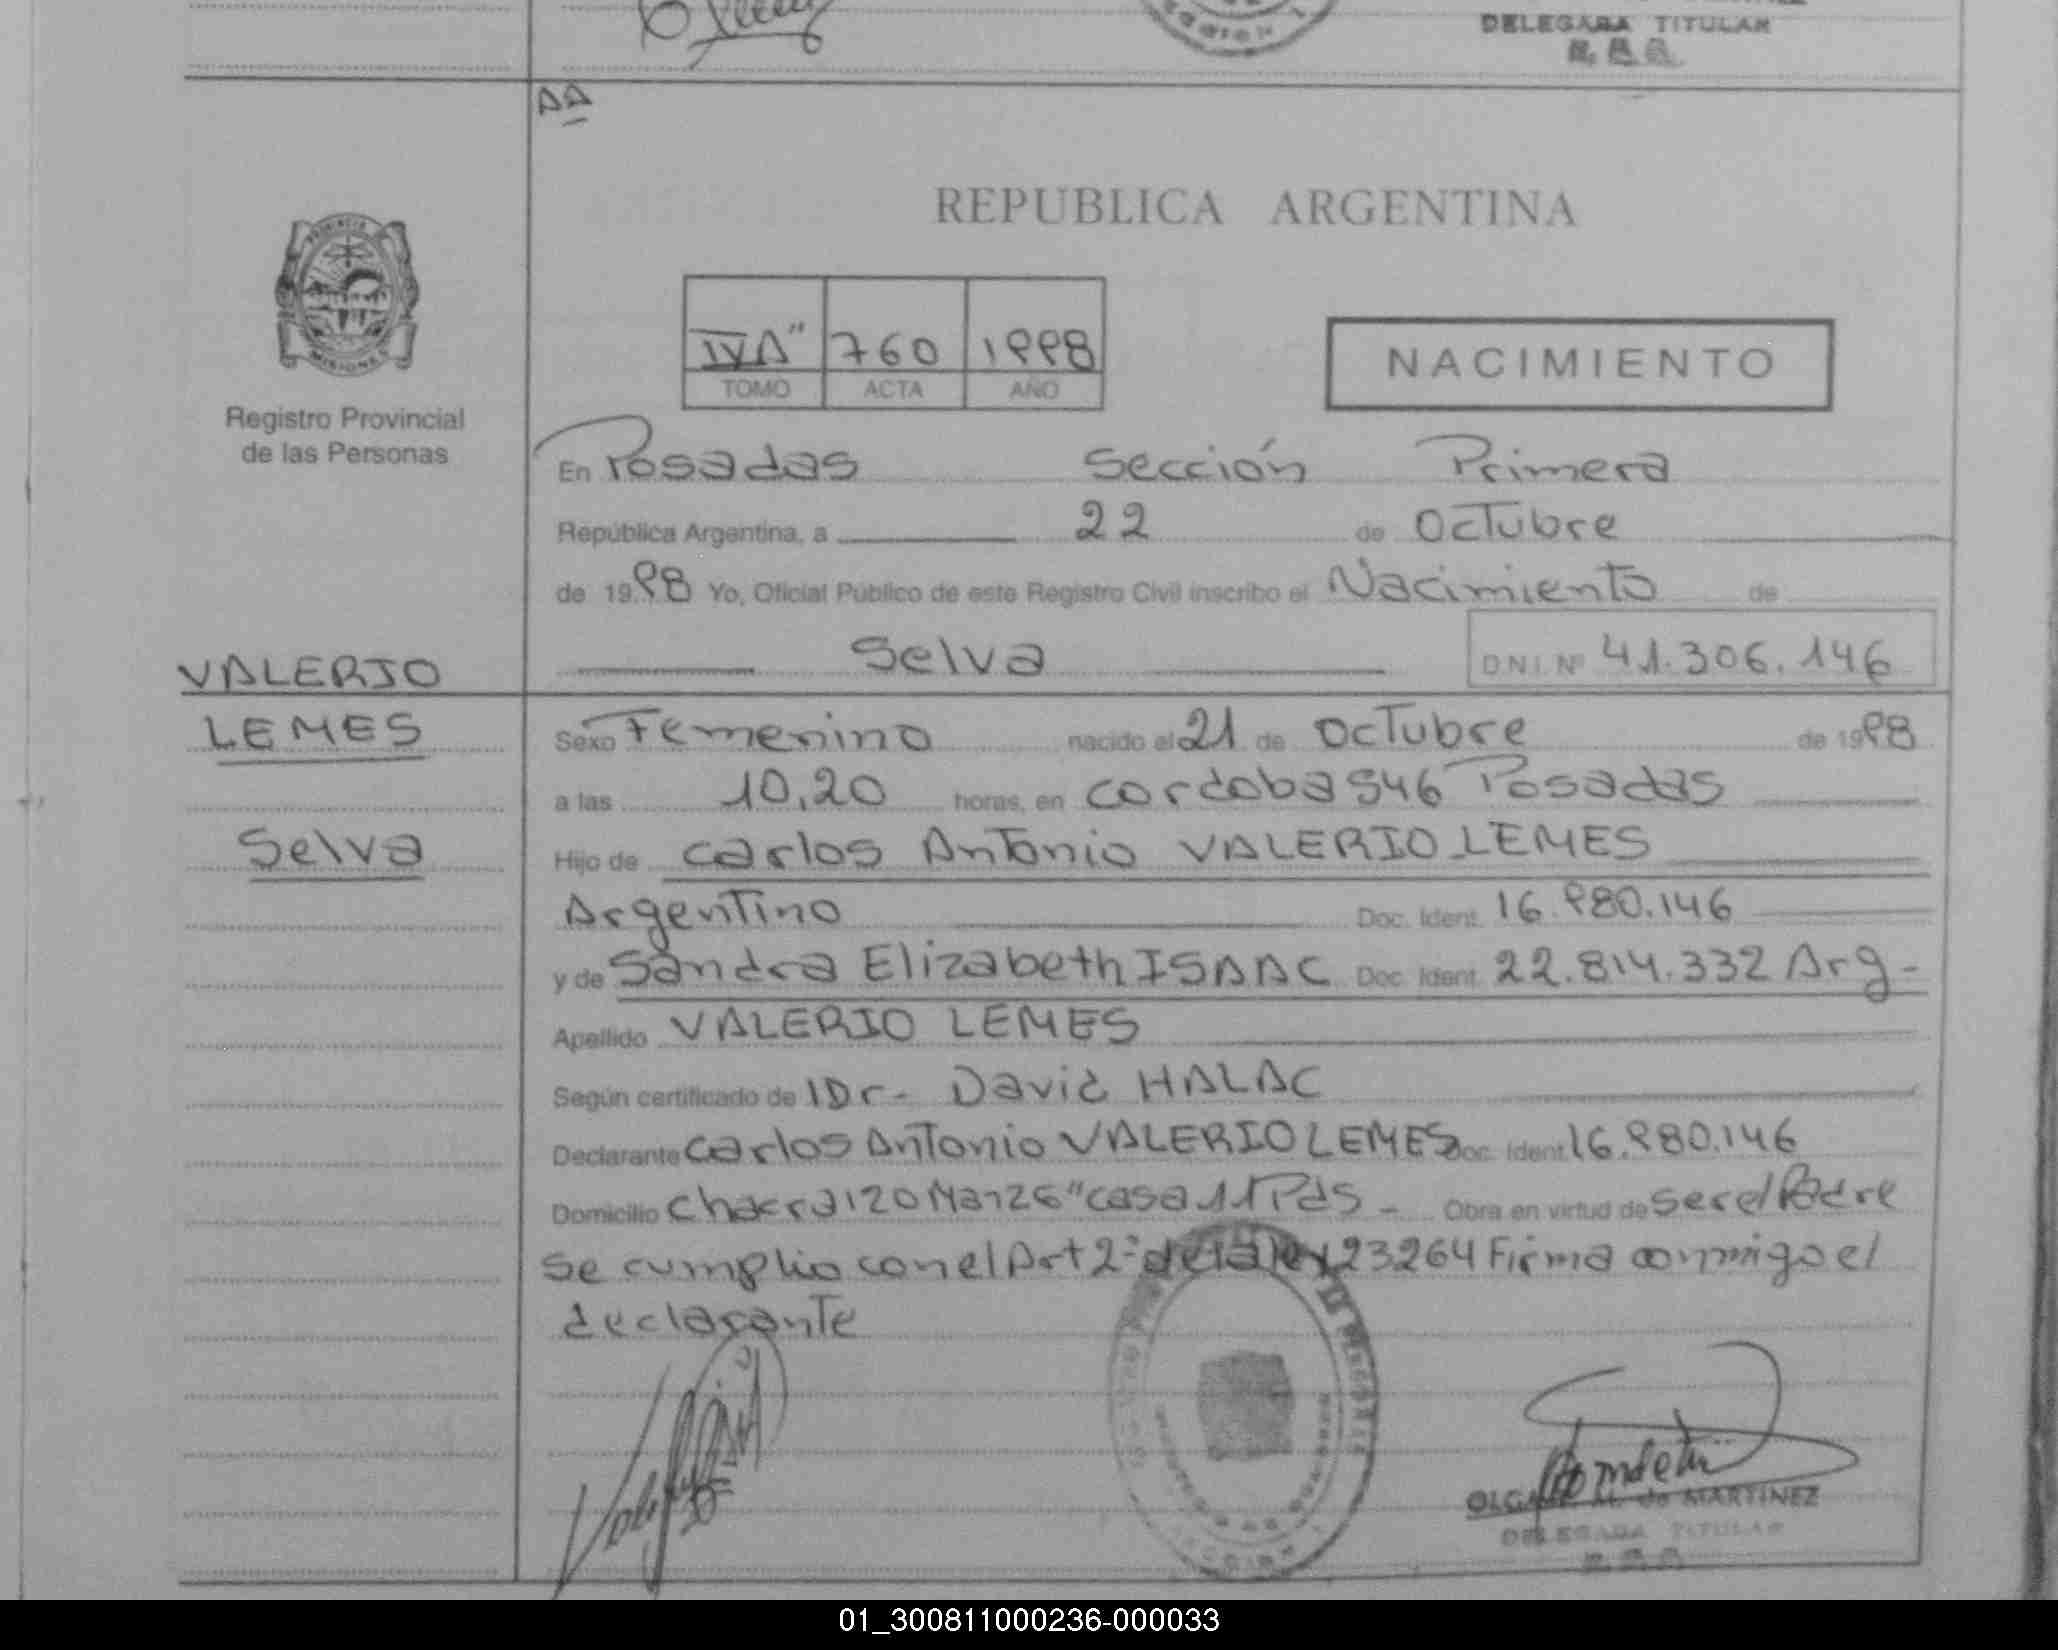 DELEGADA TITULAR
AA
REPUBLICA ARGENTINA
PROVINCIA
MISIONES
IVA" 760 1998
TOMO ACTA AÑO
NACIMIENTO
Registro Provincial
de las Personas
En Posadas Sección Primera
República Argentina, a 22 de Octubre
de 1998 Yo, Oficial Público de este Registro Civil inscribo el Nacimiento de
Selva D.N.I. Nº 41.306.146
VALERIO
LEMES
Selva
Sexo Femenino nacido el 21 de Octubre de 1998
a las 10,20 horas, en Cordoba 546 Posadas
Hijo de Carlos Antonio VALERIO LEMES
Argentino Doc. Ident. 16.980.146
y de Sandra Elizabeth ISAAC Doc. Ident. 22.814.332 Arg-
Apellido VALERIO LEMES
Según certificado de Dr- David HALAC
Declarante Carlos Antonio VALERIO LEMES Doc. Ident 16.980.146
Domicilio Chacra 120 Manz 6" casa 11 Pds - Obra en virtud de ser el Padre
se cumplio con el Art 2º de la ley 23264 Firma conmigo el
declarante
OLGA M. de MARTINEZ
DELEGADA TITULAR
01_300811000236-000033